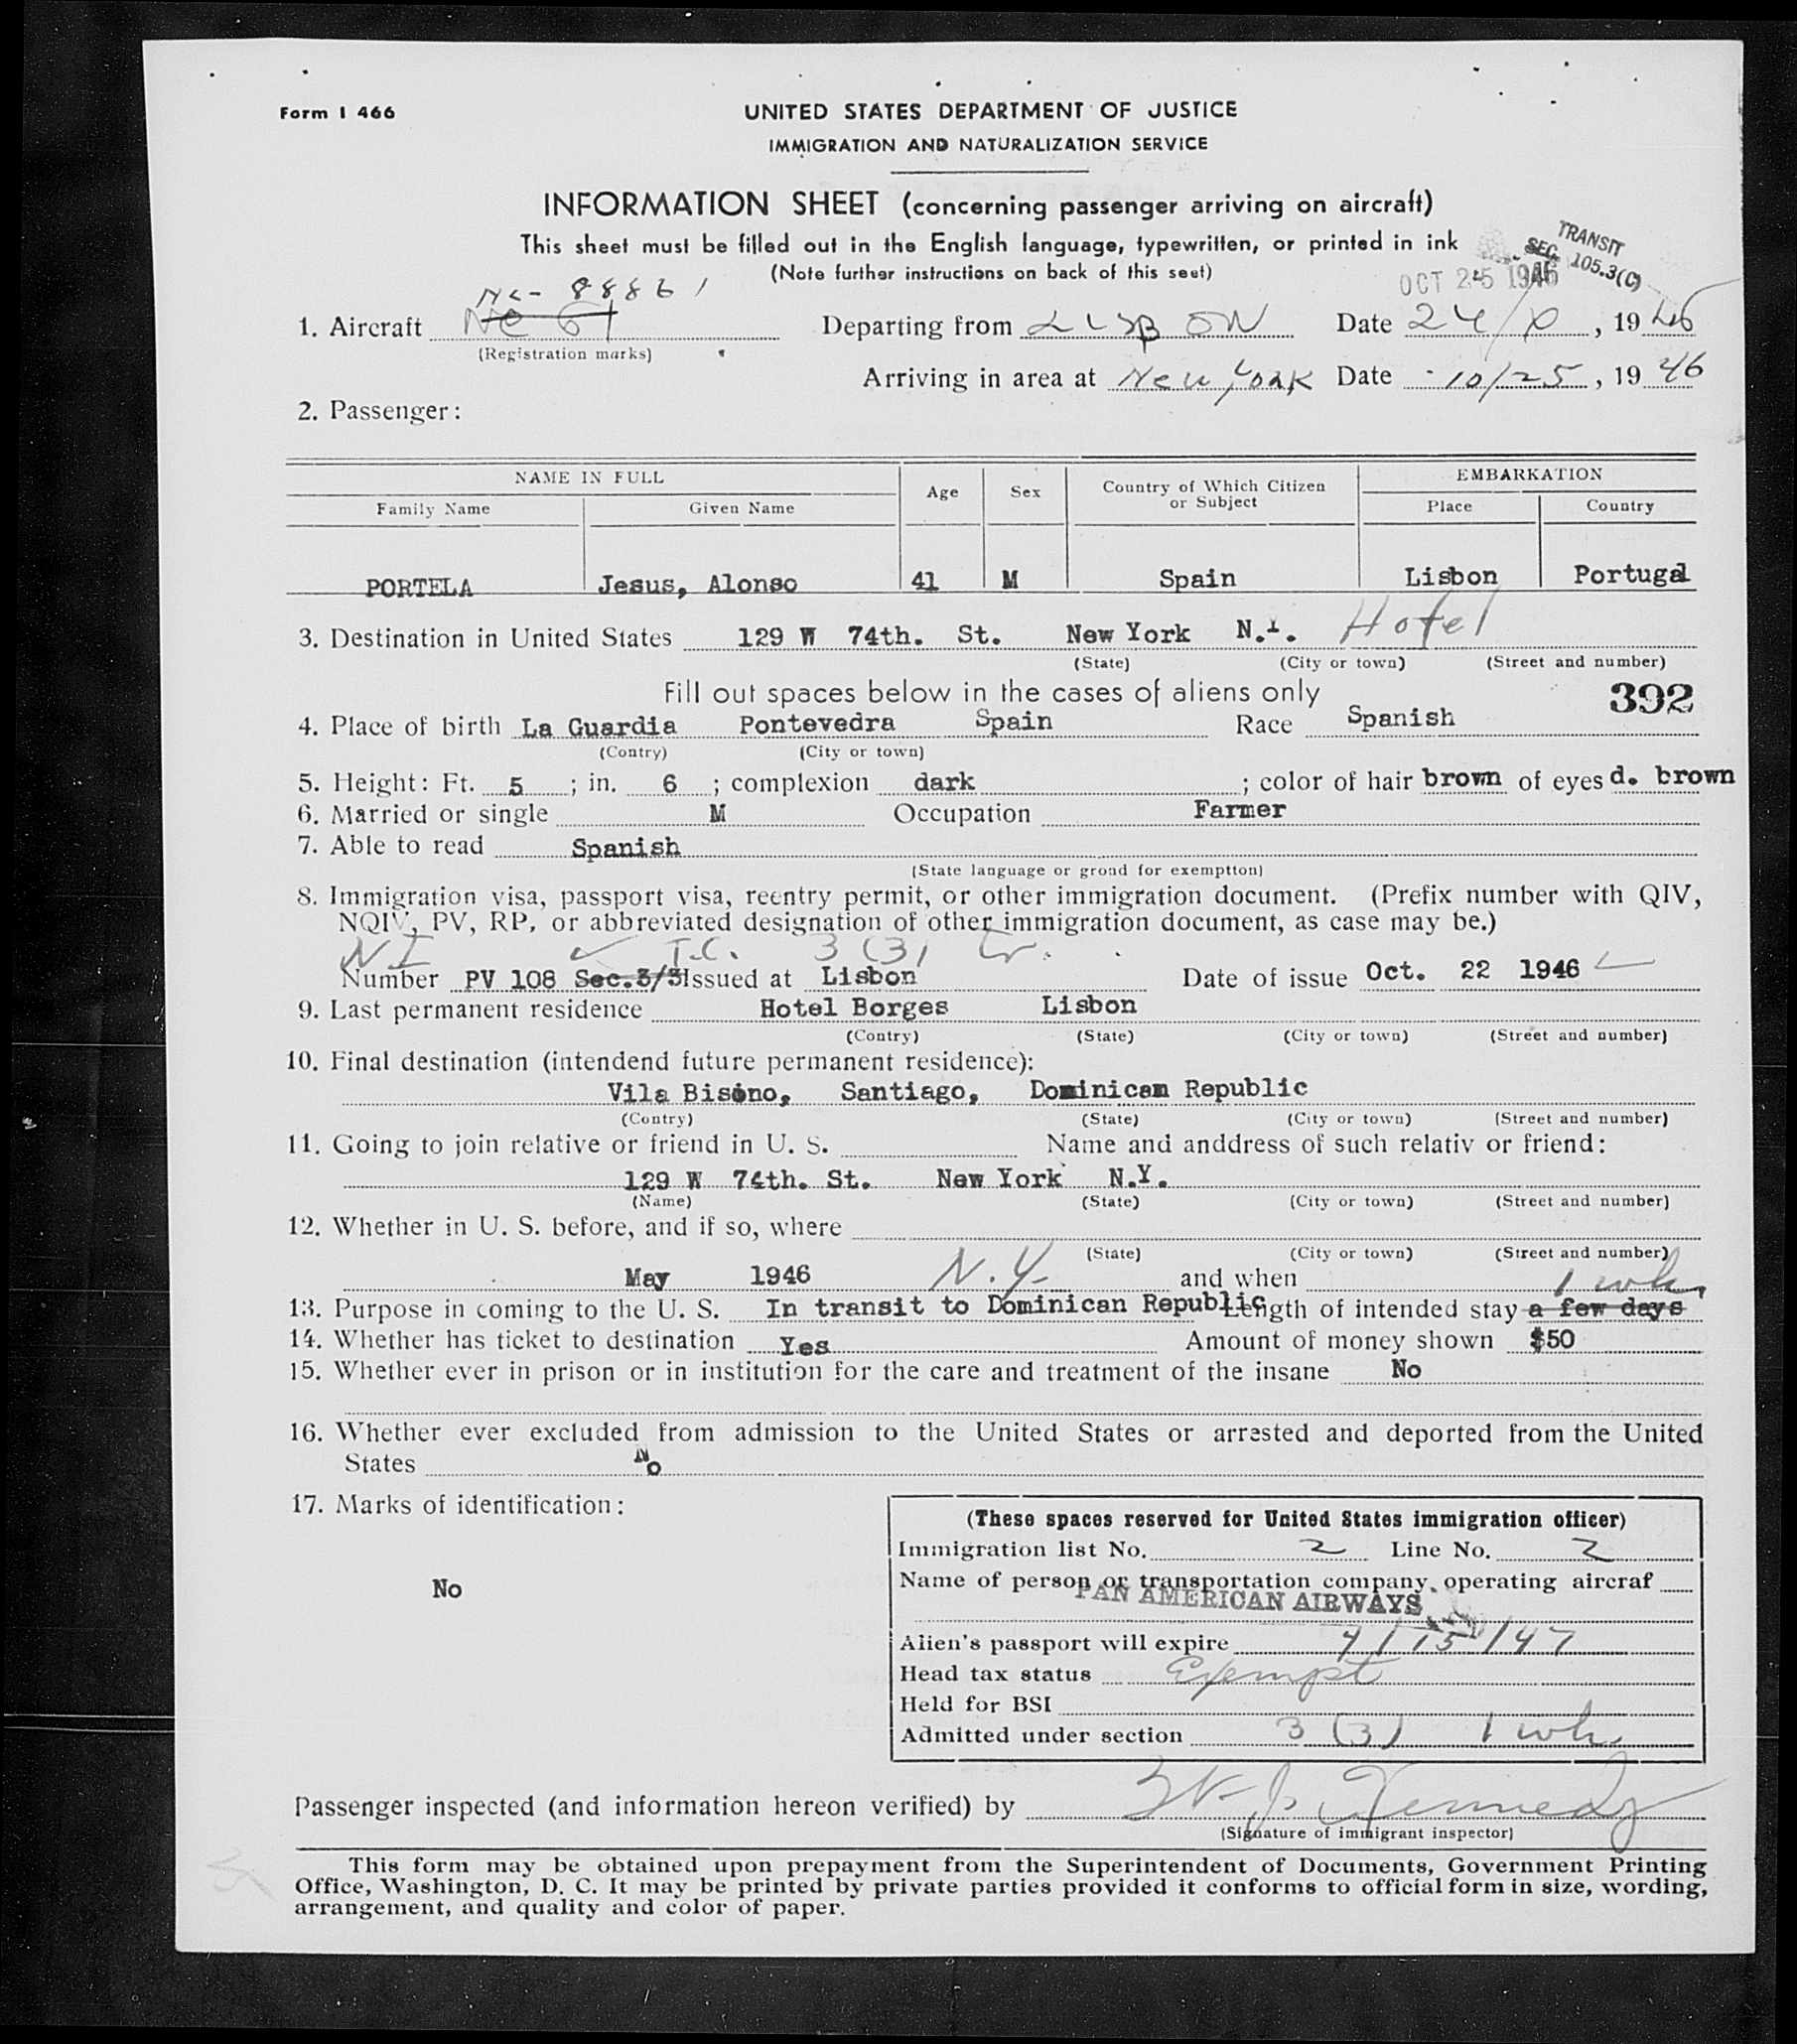 Form I 466
UNITED STATES DEPARTMENT OF JUSTICE
IMMIGRATION AND NATURALIZATION SERVICE
INFORMATION SHEET (concerning passenger arriving on aircraft)
This sheet must be filled out in the English language, typewritten, or printed in ink
(Note further instructions on back of this seet)
TRANSIT
SEC. 105.3(C)
OCT 25 1946
NC- 88861
1. Aircraft NC 61 Departing from LISBON Date 24/X, 1946
(Registration marks)
Arriving in area at New York Date 10/25, 1946
2. Passenger:
NAME IN FULL Age Sex Country of Which Citizen or Subject EMBARKATION
Family Name Given Name Place Country
PORTELA Jesus, Alonso 41 M Spain Lisbon Portugal
3. Destination in United States 129 W 74th. St. New York N.Y. Hotel
(State) (City or town) (Street and number)
Fill out spaces below in the cases of aliens only 392
4. Place of birth La Guardia Pontevedra Spain Race Spanish
(Contry) (City or town)
5. Height: Ft. 5; in. 6; complexion dark; color of hair brown of eyes d. brown
6. Married or single M Occupation Farmer
7. Able to read Spanish
(State language or grond for exemption)
8. Immigration visa, passport visa, reentry permit, or other immigration document. (Prefix number with QIV,
NQIV, PV, RP, or abbreviated designation of other immigration document, as case may be.)
NI T.C. 3 (3)
Number PV 108 Sec.3/3 Issued at Lisbon Date of issue Oct. 22 1946
9. Last permanent residence Hotel Borges Lisbon
(Contry) (State) (City or town) (Street and number)
10. Final destination (intendend future permanent residence):
Vila Bisono, Santiago, Dominican Republic
(Contry) (State) (City or town) (Street and number)
11. Going to join relative or friend in U. S. Name and anddress of such relativ or friend:
129 W 74th. St. New York N.Y.
(Name) (State) (City or town) (Street and number)
12. Whether in U. S. before, and if so, where
(State) (City or town) (Street and number)
May 1946 N.Y. and when 1 wk
13. Purpose in coming to the U. S. In transit to Dominican Republic Length of intended stay a few days
14. Whether has ticket to destination Yes Amount of money shown $50
15. Whether ever in prison or in institution for the care and treatment of the insane No
16. Whether ever excluded from admission to the United States or arrested and deported from the United
States No
17. Marks of identification:
No
(These spaces reserved for United States immigration officer)
Immigration list No. 2 Line No. 2
Name of person or transportation company operating aircraf
PAN AMERICAN AIRWAYS
Alien's passport will expire 4/15/47
Head tax status Exempt
Held for BSI
Admitted under section 3 (3) 1 wk.
Passenger inspected (and information hereon verified) by W. J. Kennedy
(Signature of immigrant inspector)
This form may be obtained upon prepayment from the Superintendent of Documents, Government Printing
Office, Washington, D. C. It may be printed by private parties provided it conforms to official form in size, wording,
arrangement, and quality and color of paper.